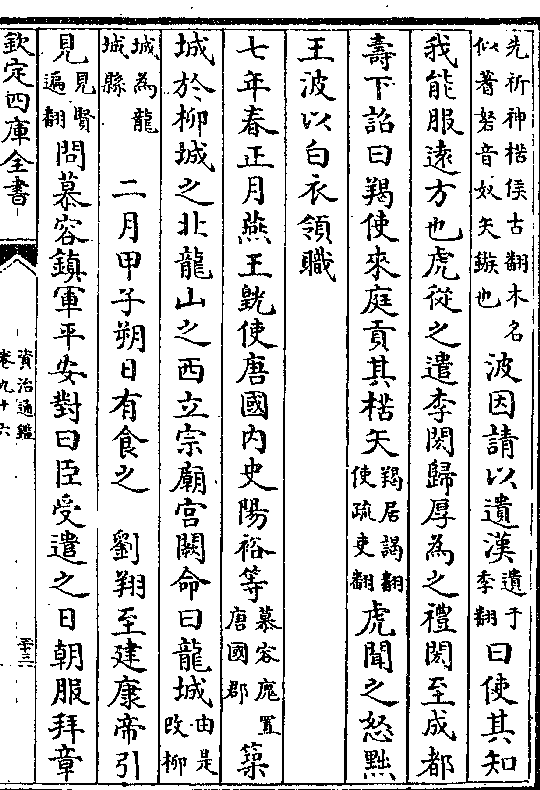 先祈神楛侯古翻木名
似蓍砮音奴矢鏃也
波因請以遺漢遺于季翻曰使其知
我能服遠方也虎從之遣李閎歸厚為之禮閎至成都
壽下詔曰羯使來庭貢其楛矢羯居謁翻使疏吏翻虎聞之怒黜
王波以白衣領職
七年春正月燕王皝使唐國内史陽裕等慕容廆置唐國郡築
城於柳城之北龍山之西立宗廟宫闕命曰龍城由是改柳
城為龍城縣 二月甲子朔日有食之 劉翔至建康帝引
見見賢遍翻問慕容鎮軍平安對曰臣受遣之日朝服拜章
欽定四庫全書
資治通鑑
卷九十六